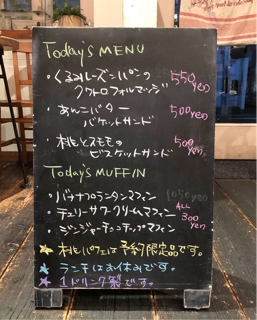 Today's MENU
・くるみレーズンパンの
クワトロフォルマッジ 550yen
・あんこバター
バゲットサンド 500yen
・桃とスモモの
ビスケットサンド 500yen
Today's MUFFIN
・バナナプランタンマフィン
・チェリーサワークリームマフィン ALL 300yen
・ジンジャーチョコチップマフィン
★桃パフェは予約限定品です。
★ランチはお休みです。
★1ドリンク製です。